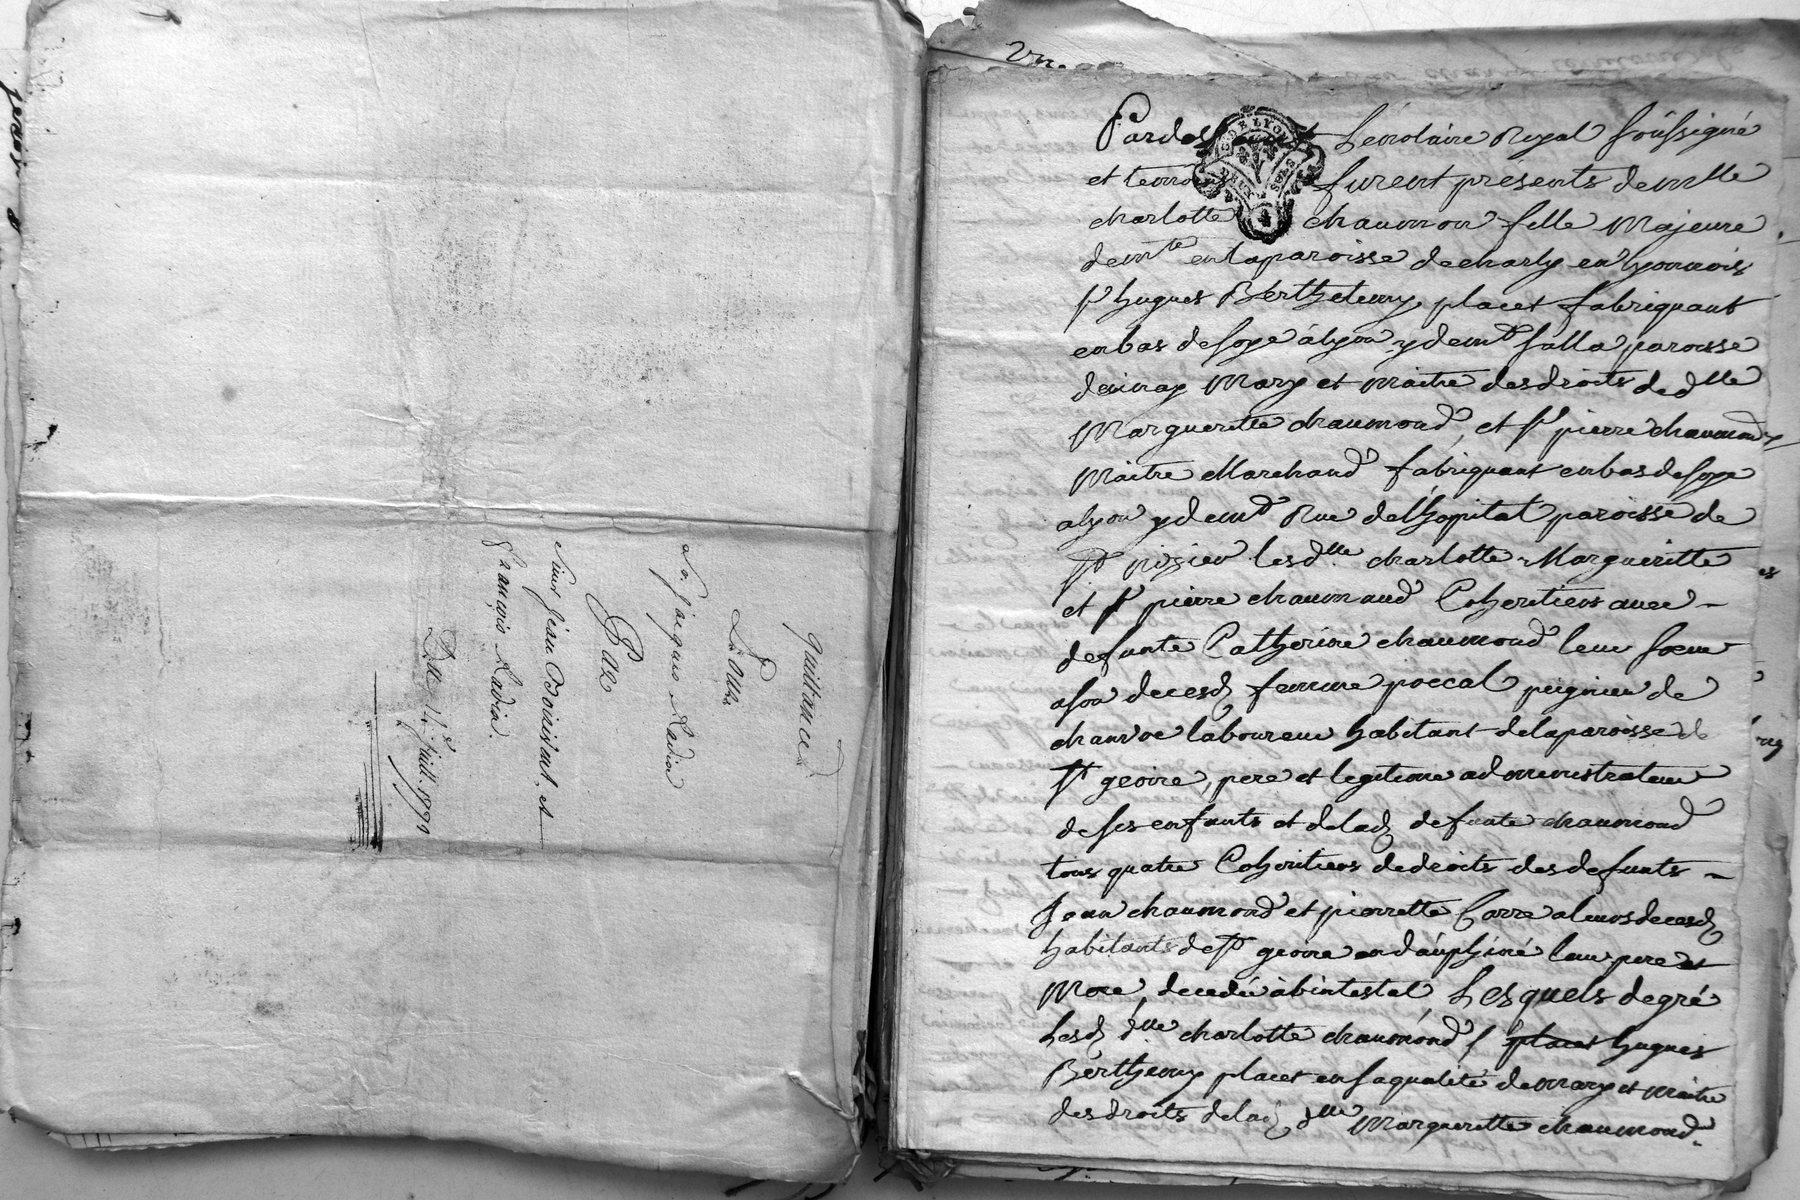 quittance
Pour
Sr jaques Radix
Par
Sieur jean Boissat, et
François Radix.
Du 14e juill. 1790
Pardevant Le notaire Royal soussigné
et temoins furent presents demlle
charlotte chaumon fille Majeure
demte en la paroisse de charly en lyonnois
sr hugues Berthelemy placet fabriquant
en bas de soye à lyon y demt sur la paroisse
d'ainay Mary et maitre des droits de dlle
Margueritte chaumond, et sr pierre chaumond
Maitre Marchand fabriquant en bas de soye
a lyon y demt Rue de l'hopital paroisse de
st nizier lesd. dlle charlotte Margueritte
et sr pierre chaumond Coheritiers avec
defunte Catherine chaumond leur soeur
a son decesd femme poccal peigneur de
chanvre laboureur habitant de la paroisse de
st geoire, pere et legitime administrateur
de ses enfants et de lad defunte chaumond
tous quatre Coheritiers de droits des defunts
Jean chaumond et pierrette Carre a leurs decesd
habitants de st geoire en dauphiné leur pere et
Mere decedé abintestat, Lesquels de gré
Lesd dlle charlotte chaumond, sr placet hugues
Berthemy placet en sa qualité de mary et maitre
des droits de lad dlle Marguerette chaumond